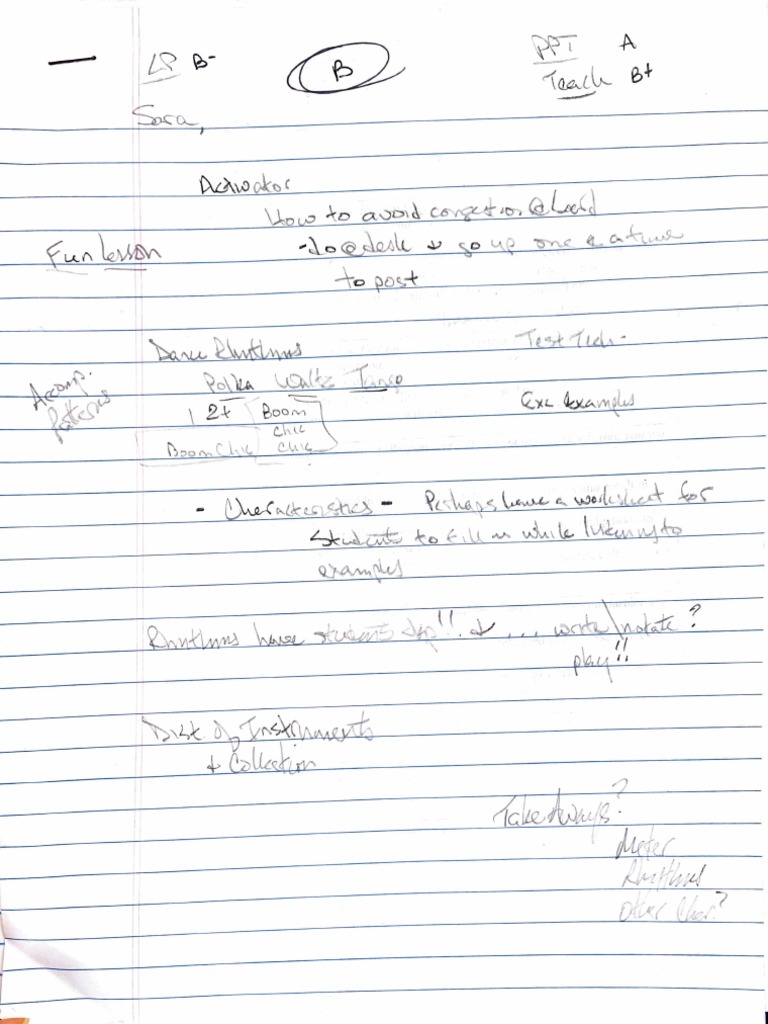 LP B-
B
PPT A
Teach B+
Sara,
Activator
How to avoid congestion @ board
- do @ desk & go up one @ a time
to post
Fun lesson
Dance Rhythms
Test Tech -
Polka Waltz Tango
Accomp.
Patterns
1 2+ Boom
chic
Boom Chic chic
Exc examples
- Characteristics - Perhaps have a worksheet for
students to fill in while listening to
examples
Rhythms have students clap!! & ... write/notate?
play!!
Dist. of Instruments
& Collection
Take Aways?
Meter
Rhythms
other Char?